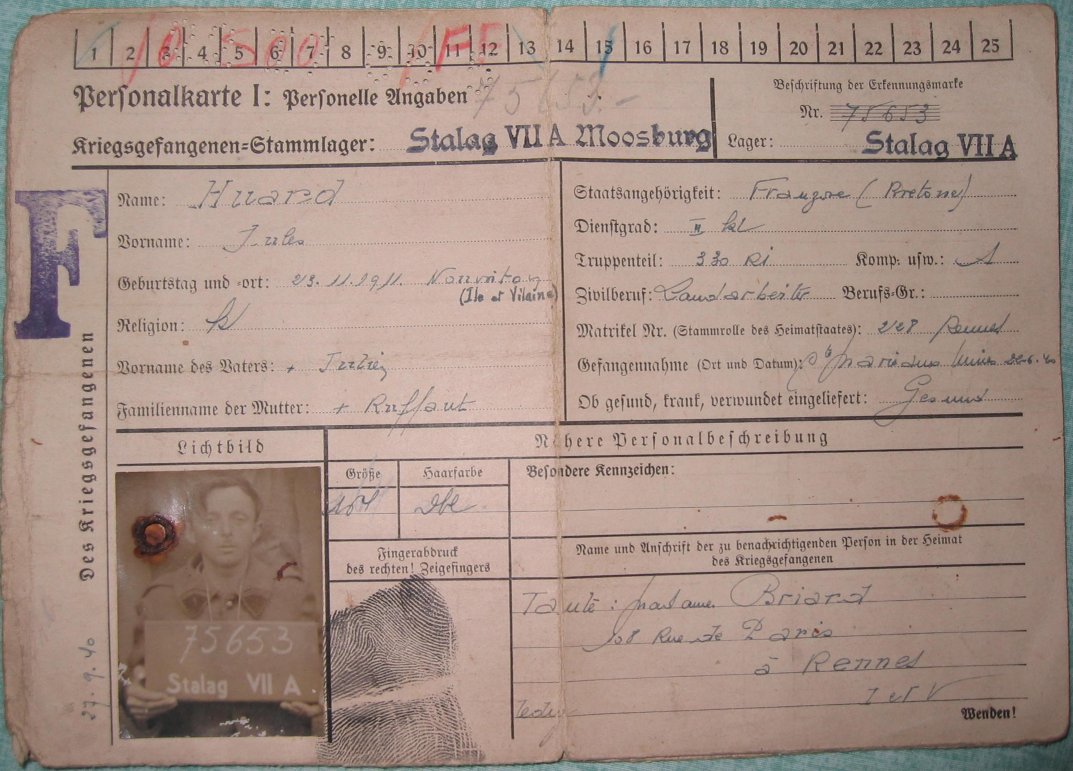 1 2 3 4 5 6 7 8 9 10 11 12 13 14 15 16 17 18 19 20 21 22 23 24 25
Personalkarte I: Personelle Angaben
75653.-
Beschriftung der Erkennungsmarke
Nr. 75653
Kriegsgefangenen=Stammlager: Stalag VII A Moosburg
Lager: Stalag VII A
F
Des Kriegsgefangenen
27.9.40
Name: Huard
Vorname: Jules
Geburtstag und =ort: 23.11.1911
(Ile et Vilaine)
Religion: k
Vorname des Vaters: +
Familienname der Mutter: + Ruffaut
Staatsangehörigkeit: (Bretone)
Dienstgrad: II kl
Truppenteil: 330 RI Komp. usw.: 1
Zivilberuf: Landarbeiter Berufs=Gr.:
Matrikel Nr. (Stammrolle des Heimatstaates): 2128 Rennes
Gefangennahme (Ort und Datum): 22.6.40
Ob gesund, krank, verwundet eingeliefert: Gesund
Lichtbild
75653
Stalag VII A
Nähere Personalbeschreibung
Größe
Haarfarbe
Dbl
Besondere Kennzeichen:
Fingerabdruck
des rechten! Zeigefingers
Name und Anschrift der zu benachrichtigenden Person in der Heimat
des Kriegsgefangenen
Tante: Madame Briard
108 Rue de Paris
à Rennes
I et V
Wenden!